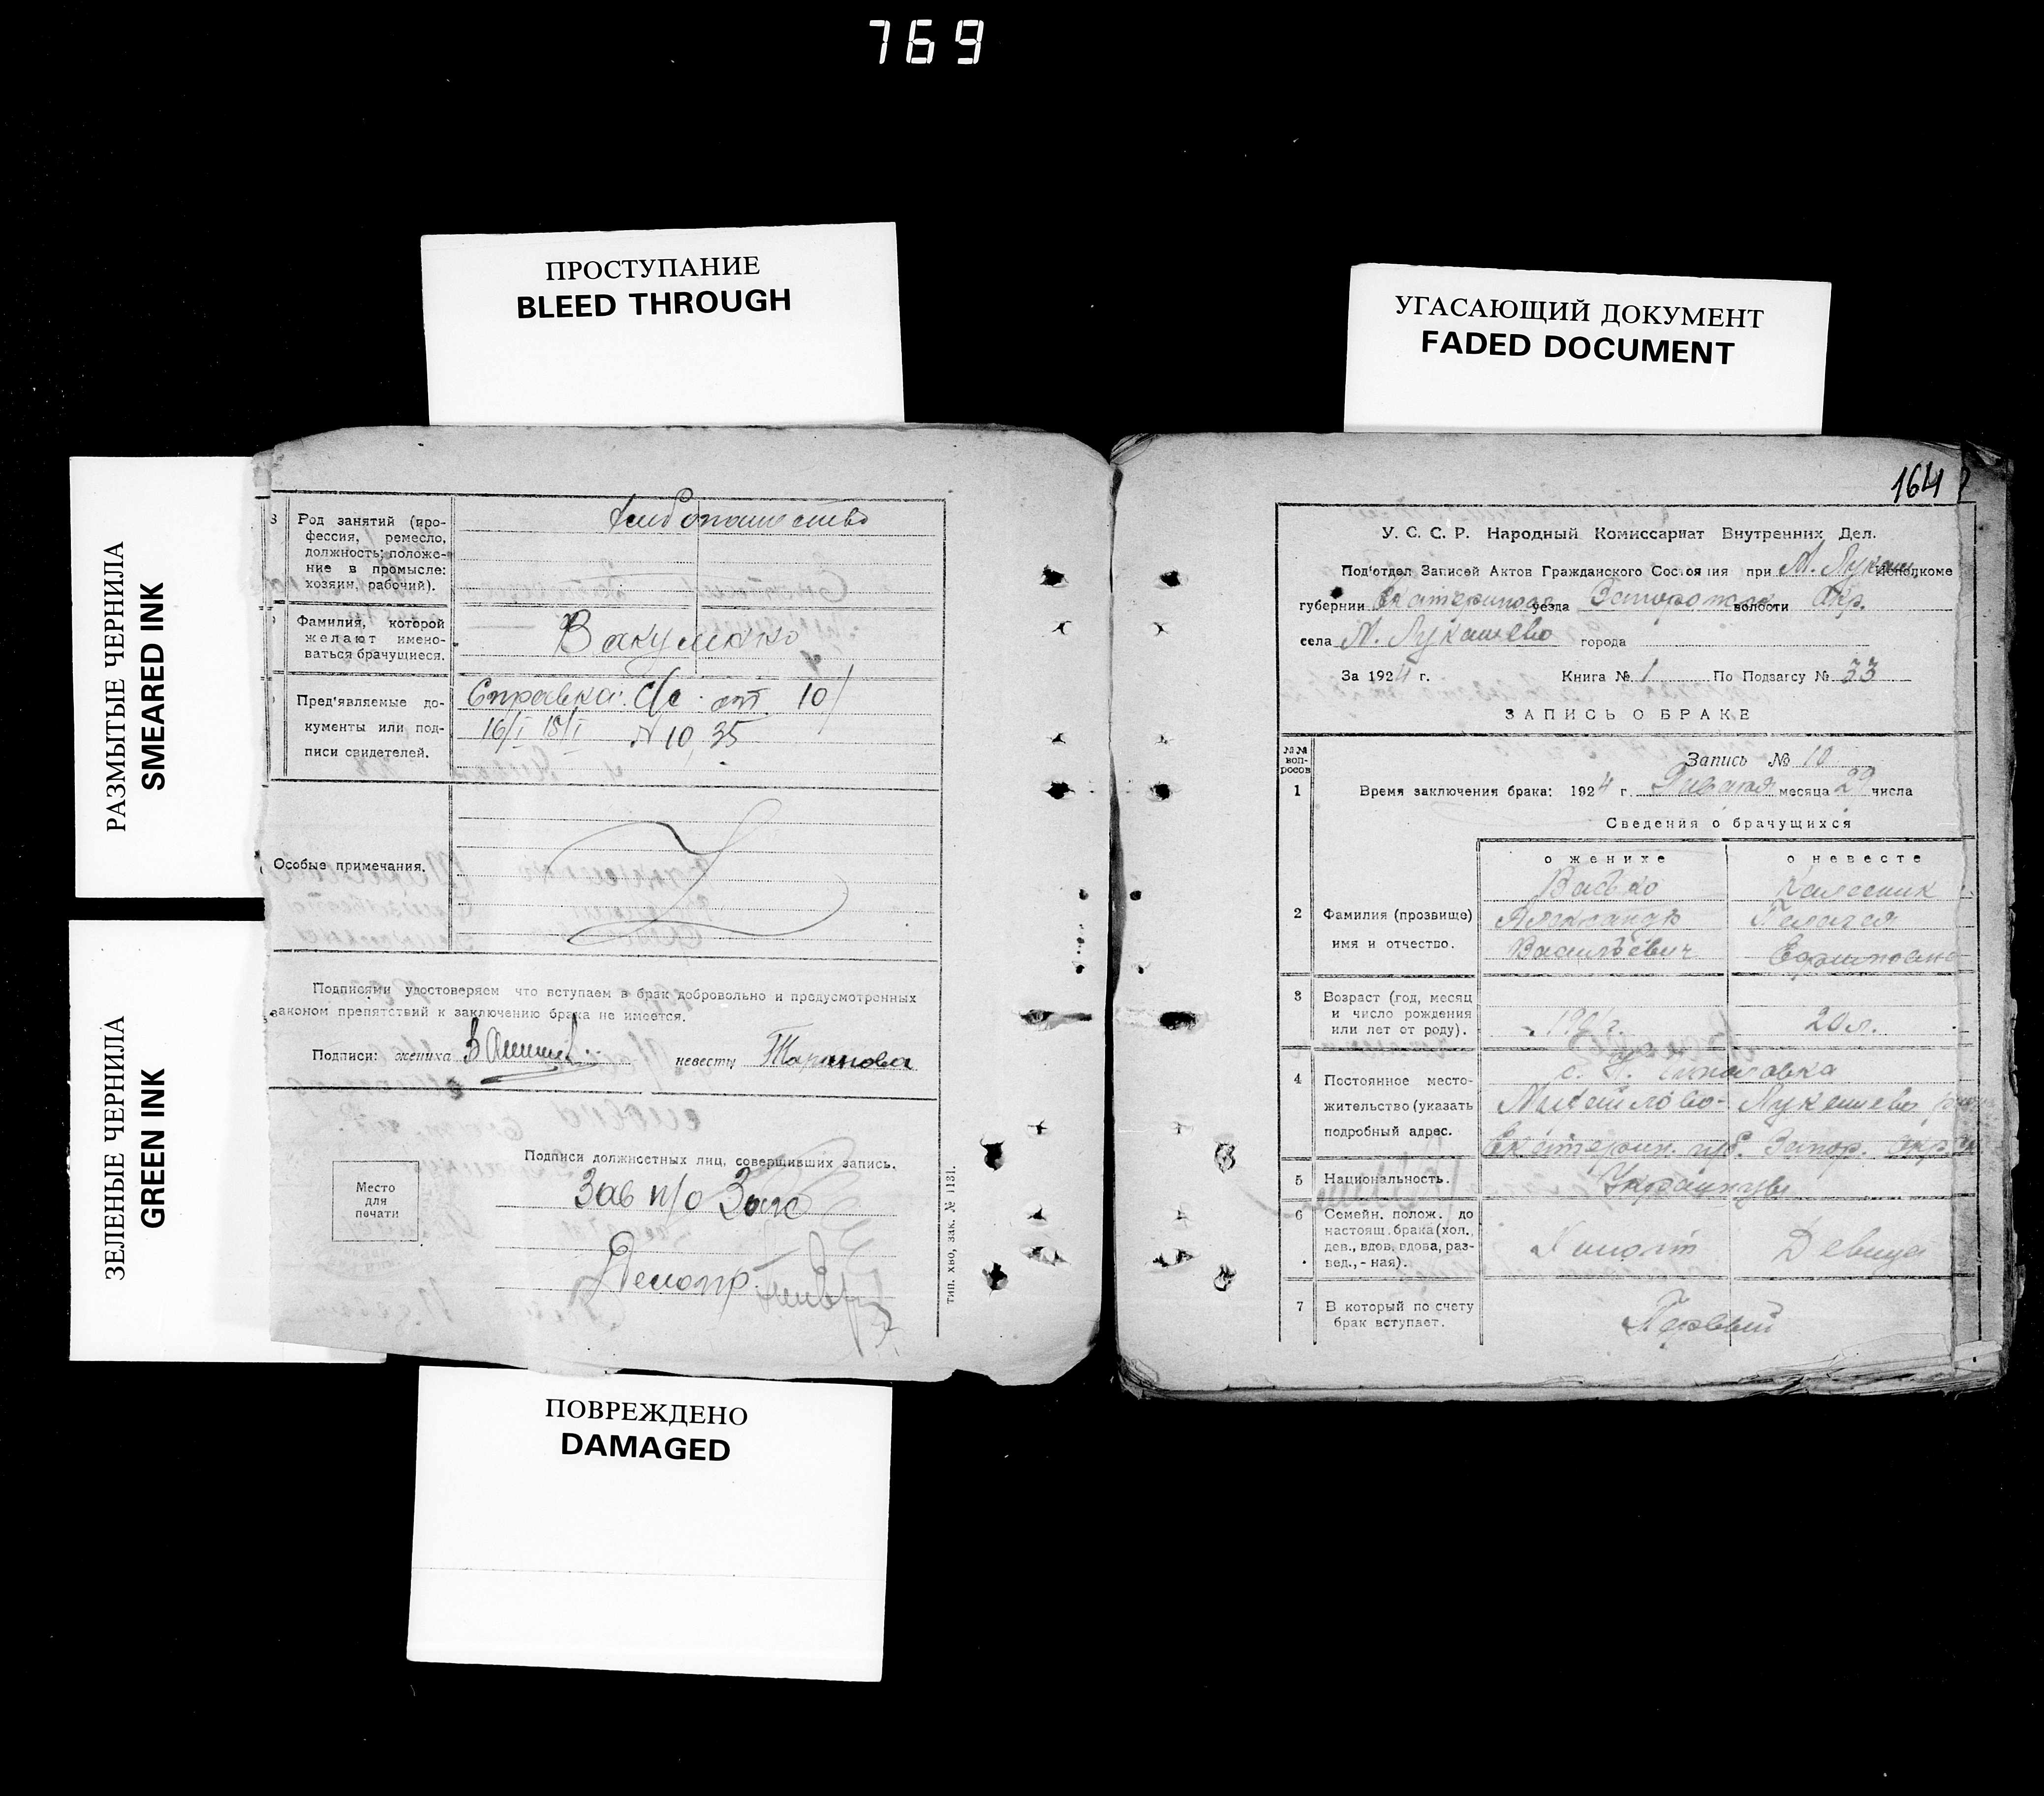 769
ПРОСТУПАНИЕ
BLEED THROUGH
УГАСАЮЩИЙ ДОКУМЕНТ
FADED DOCUMENT
РАЗМЫТЫЕ ЧЕРНИЛА
SMEARED INK
ЗЕЛЕНЫЕ ЧЕРНИЛА
GREEN INK
ПОВРЕЖДЕНО
DAMAGED
Род занятий (про-
фессия, ремесло,
должность; положе-
ние в промысле:
хозяин, рабочий).
Фамилия, которой
желают имено-
ваться брачущиеся.
Вакуленко
Пред'являемые до-
кументы или под-
писи свидетелей.
Справка: с/с от 10/
16/I 15/I N 10, 35
Особые примечания.
Подписями удостоверяем что вступаем в брак добровольно и предусмотренных
законом препятствий к заключению брака не имеется.
Подписи: жениха
невесты Таранова
Подписи должностных лиц, совершивших запись.
Место
для
печати
Зав п/о Загс
тип. хво, зак. № 1131.
164
У. С. С. Р. Народный Комиссариат Внутренних Дел.
Под'отдел Записей Актов Гражданского Состояния при М. Лукаш. Исполкоме
губернии Екатеринос уезда Запорожск волости Окр.
села М. Лукашево города
За 1924 г. Книга № 1 По Подзагсу № 33
ЗАПИСЬ О БРАКЕ
№№ воп-
росов
Запись № 10
1 Время заключения брака: 1924 г. Января месяца 29 числа
Сведения о брачущихся
о женихе о невесте
Васько Калесник
2 Фамилия (прозвище) Александр Пелагея
имя и отчество. Васильевич
3 Возраст (год, месяц
и число рождения
или лет от роду). 20 л.
4 Постоянное место-
жительство (указать Михайлово- Лукашево
подробный адрес.
Екатерин. губ. Запор. окр.
5 Национальность. Украинцы
6 Семейн. полож. до
настоящ. брака (хол.,
дев., вдов, вдова, раз-
вед., - ная). Холост Девица
7 В который по счету
брак вступает. Первый